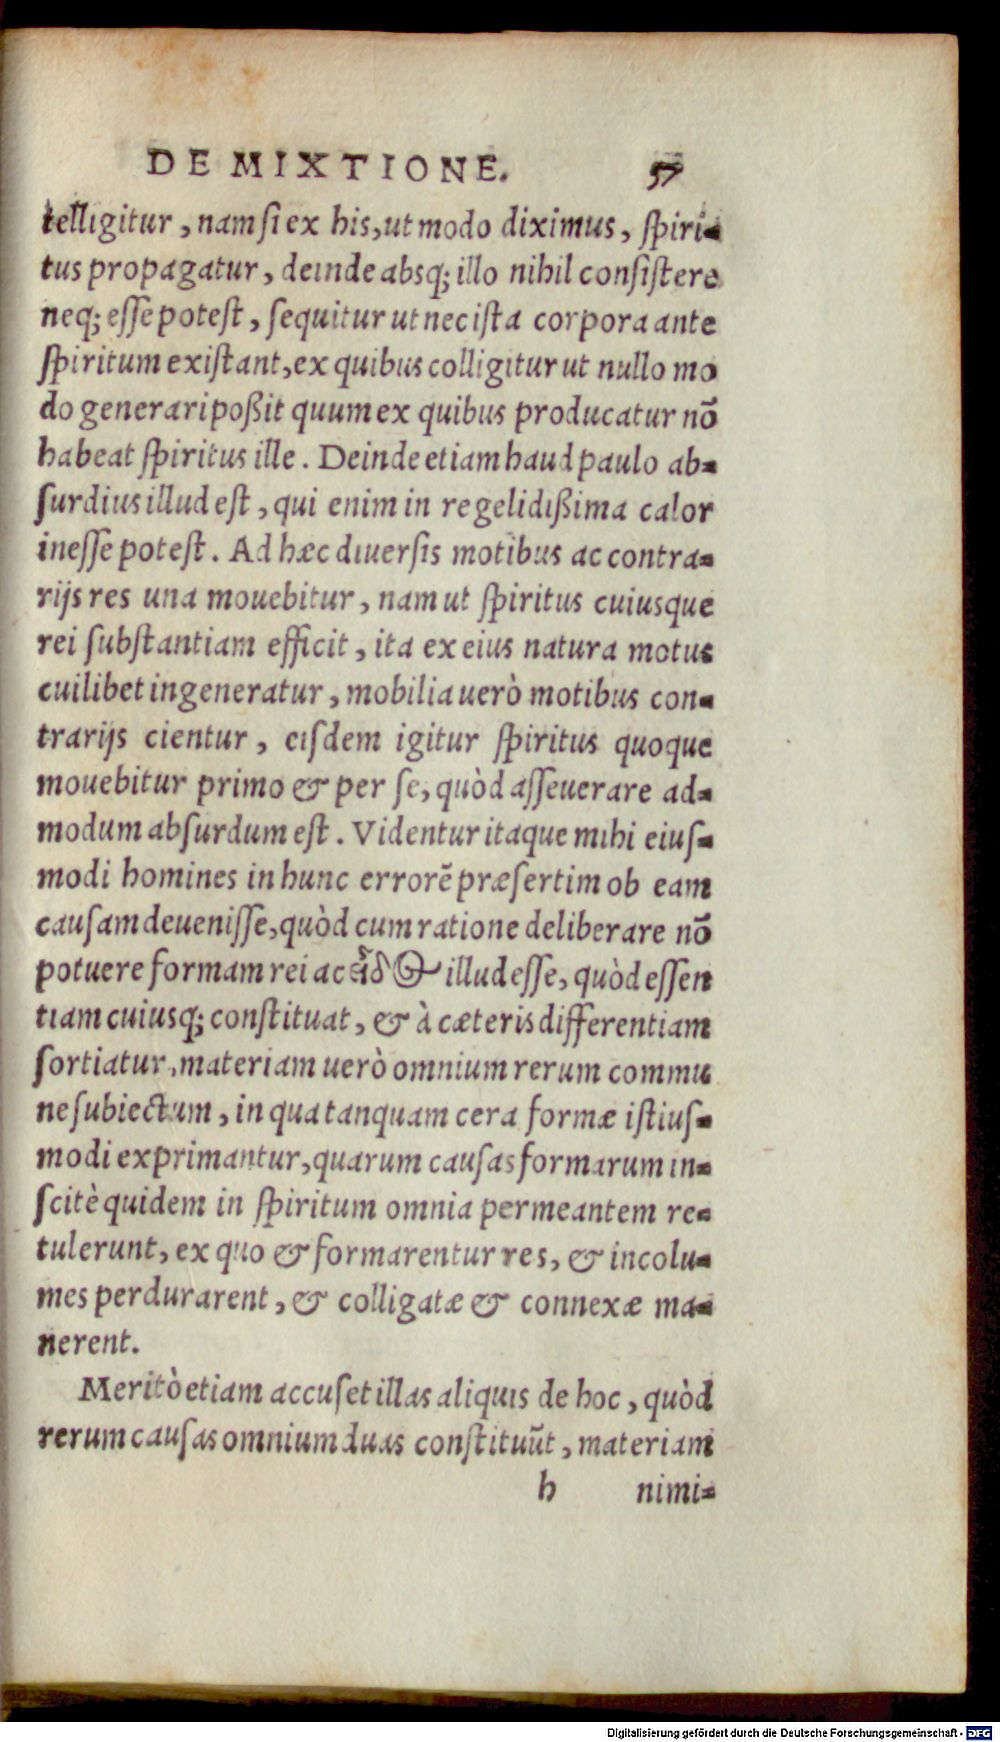 DE MIXTIONE. 57
telligitur, nam si ex his, ut modo diximus, spiri-
tus propagatur, deinde absq; illo nihil consistere
neq; esse potest, sequitur ut nec ista corpora ante
spiritum existant, ex quibus colligitur ut nullo mo
do generari poßit quum ex quibus producatur nõ
habeat spiritus ille. Deinde etiam haud paulo ab-
surdius illud est, qui enim in re gelidißima calor
inesse potest. Ad hæc diuersis motibus ac contra-
rijs res una mouebitur, nam ut spiritus cuiusque
rei substantiam efficit, ita ex eius natura motus
cuilibet ingeneratur, mobilia uerò motibus con-
trarijs cientur, eisdem igitur spiritus quoque
mouebitur primo & per se, quòd asseuerare ad-
modum absurdum est. Videntur itaque mihi eius-
modi homines in hunc errorẽ præsertim ob eam
causam deuenisse, quòd cum ratione deliberare nõ
potuere formam rei ac εἶδος illud esse, quòd essen
tiam cuiusq; constituat, & à cæteris differentiam
sortiatur, materiam uerò omnium rerum commu
ne subiectum, in qua tanquam cera formæ istius-
modi exprimantur, quarum causas formarum in-
scitè quidem in spiritum omnia permeantem re-
tulerunt, ex quo & formarentur res, & incolu-
mes perdurarent, & colligatæ & connexæ ma-
nerent.
Meritò etiam accuset illas aliquis de hoc, quòd
rerum causas omnium duas constituũt, materiam
h nimi-
Digitalisierung gefördert durch die Deutsche Forschungsgemeinschaft - DFG